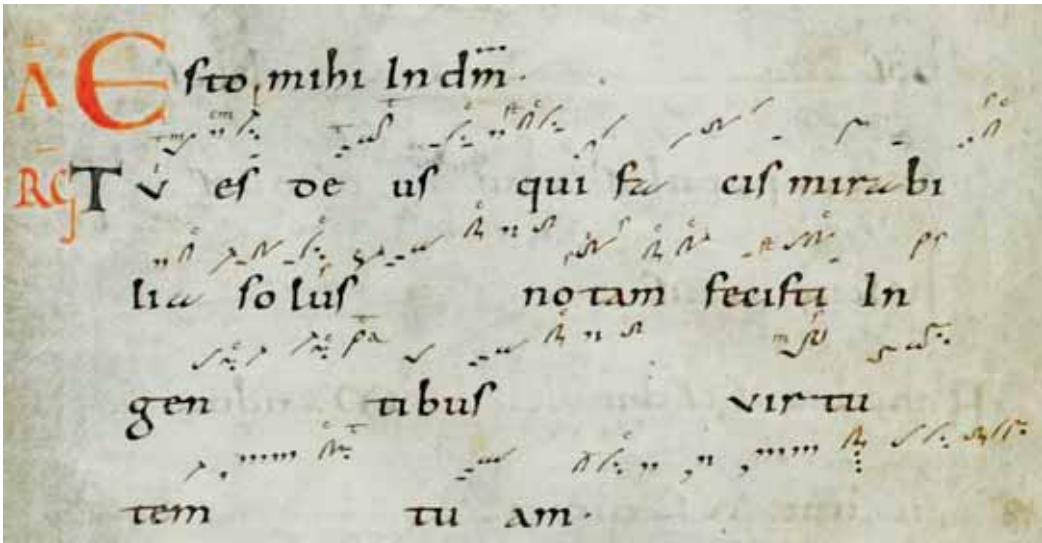 Ā Esto mihi In dm̄.
RG TV es de us qui fa cis mirabi
lia so lus notam fecisti In
gen tibus virtu
tem tu am.